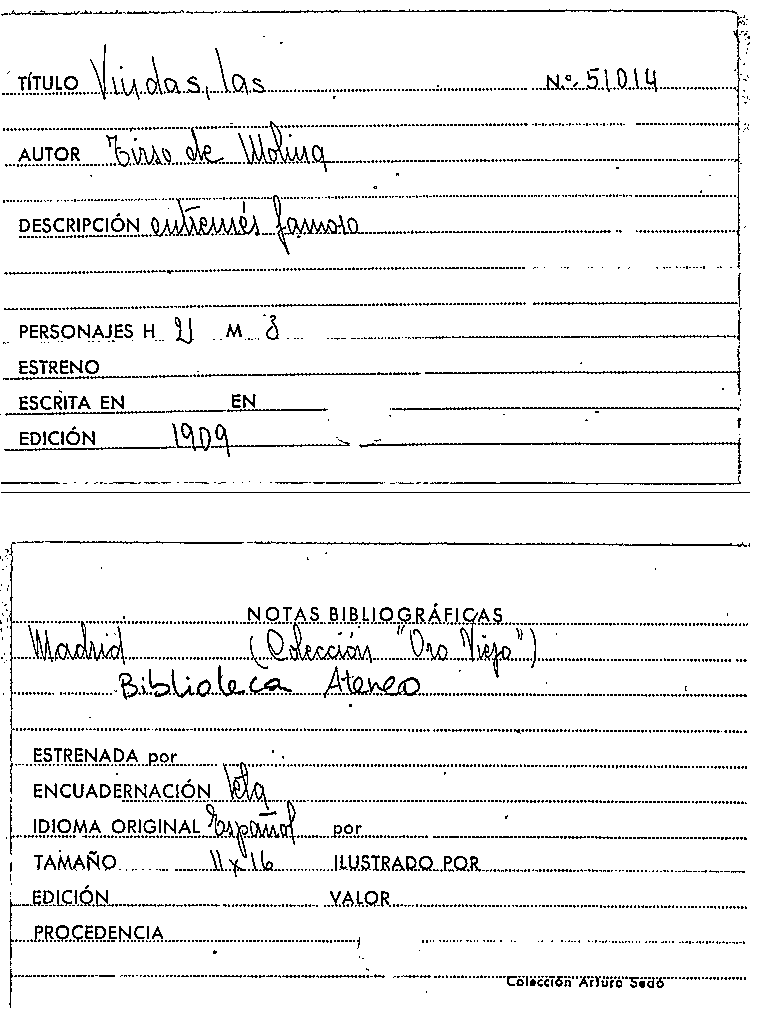 TÍTULO Viudas, las Nº 51014
AUTOR Tirso de Molina
DESCRIPCIÓN entremés famoso
PERSONAJES H 4 M 3
ESTRENO
ESCRITA EN EN
EDICIÓN 1909
NOTAS BIBLIOGRÁFICAS
Madrid (Colección "Oro Viejo")
Biblioteca Ateneo
ESTRENADA por
ENCUADERNACIÓN tela
IDIOMA ORIGINAL Español por
TAMAÑO 11 x 16 ILUSTRADO POR
EDICIÓN VALOR
PROCEDENCIA
Colección Arturo Sedó